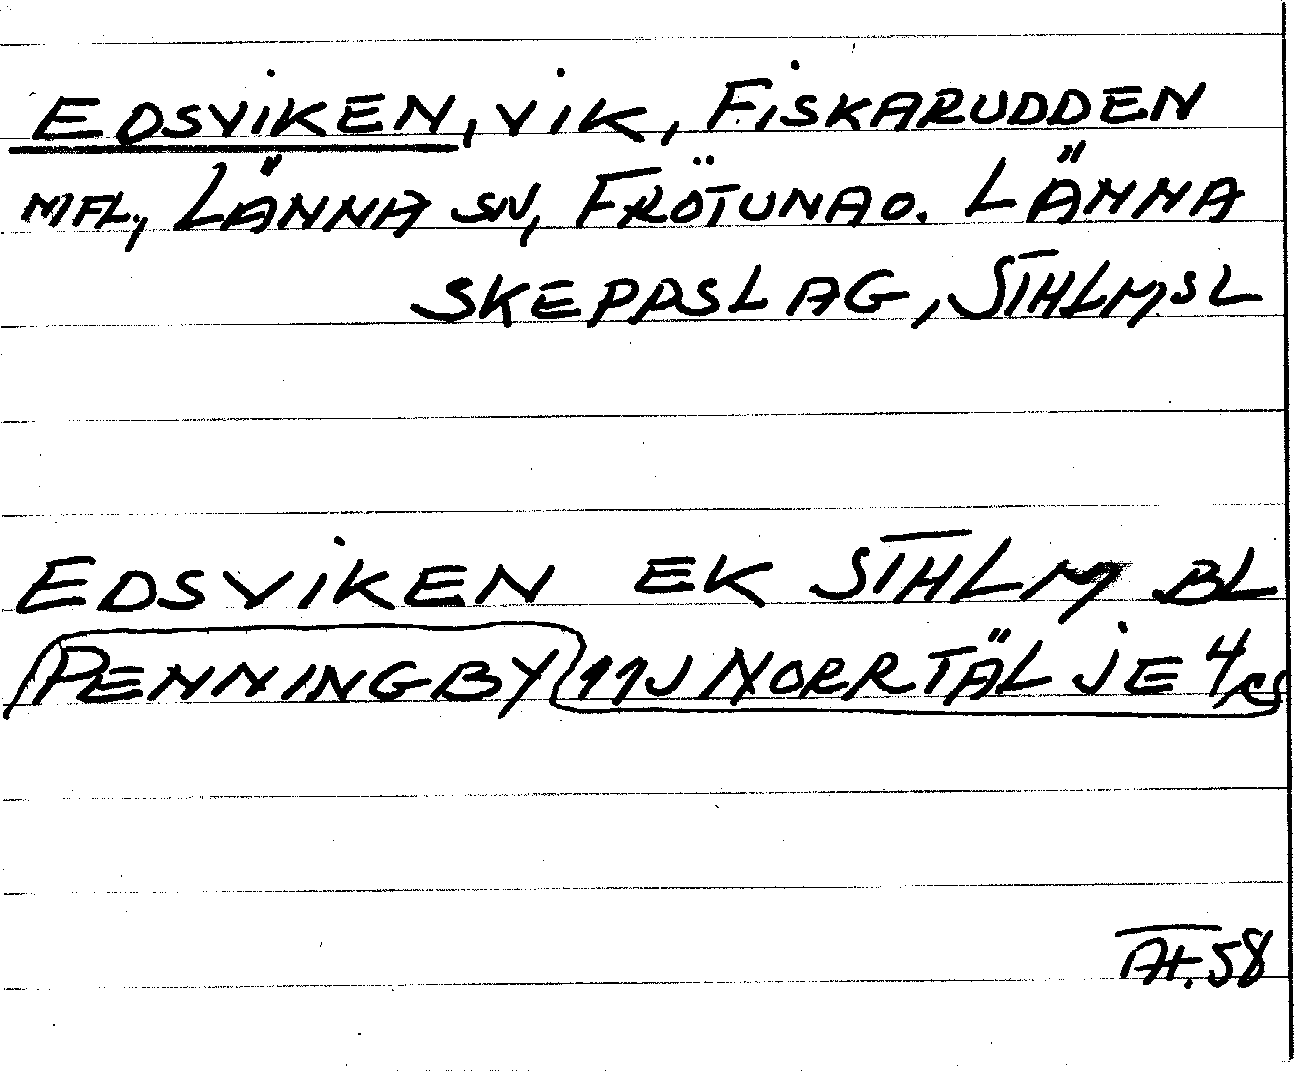 EDSVIKEN, VIK, FISKARUDDEN
M FL, LÄNNA SN, FRÖTUNA O. LÄNNA
SKEPPSLAG, STHLMS L
EDSVIKEN EK STHLM BL
PENNINGBY 11J NORRTÄLJE 4
AH. 58